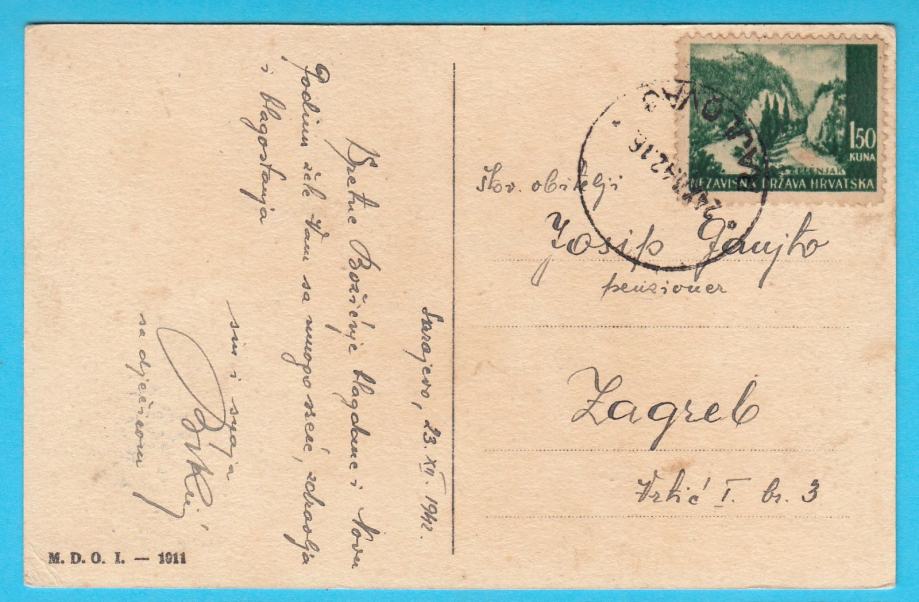 Sarajevo, 23. XII. 1942.
Sretne Božićnje blagdane i Novu
Godinu žele Vam sa mnogo sreće, zdravlja
i blagostanja
sin i snaja
sa djecom
M. D. O. I. — 1911
1.50
KUNA
ZELENJAK
NEZAVISNA DRŽAVA HRVATSKA
42.16
Štov. obitelji
Josip
penzioner
Zagreb
Vrtić I. br. 3